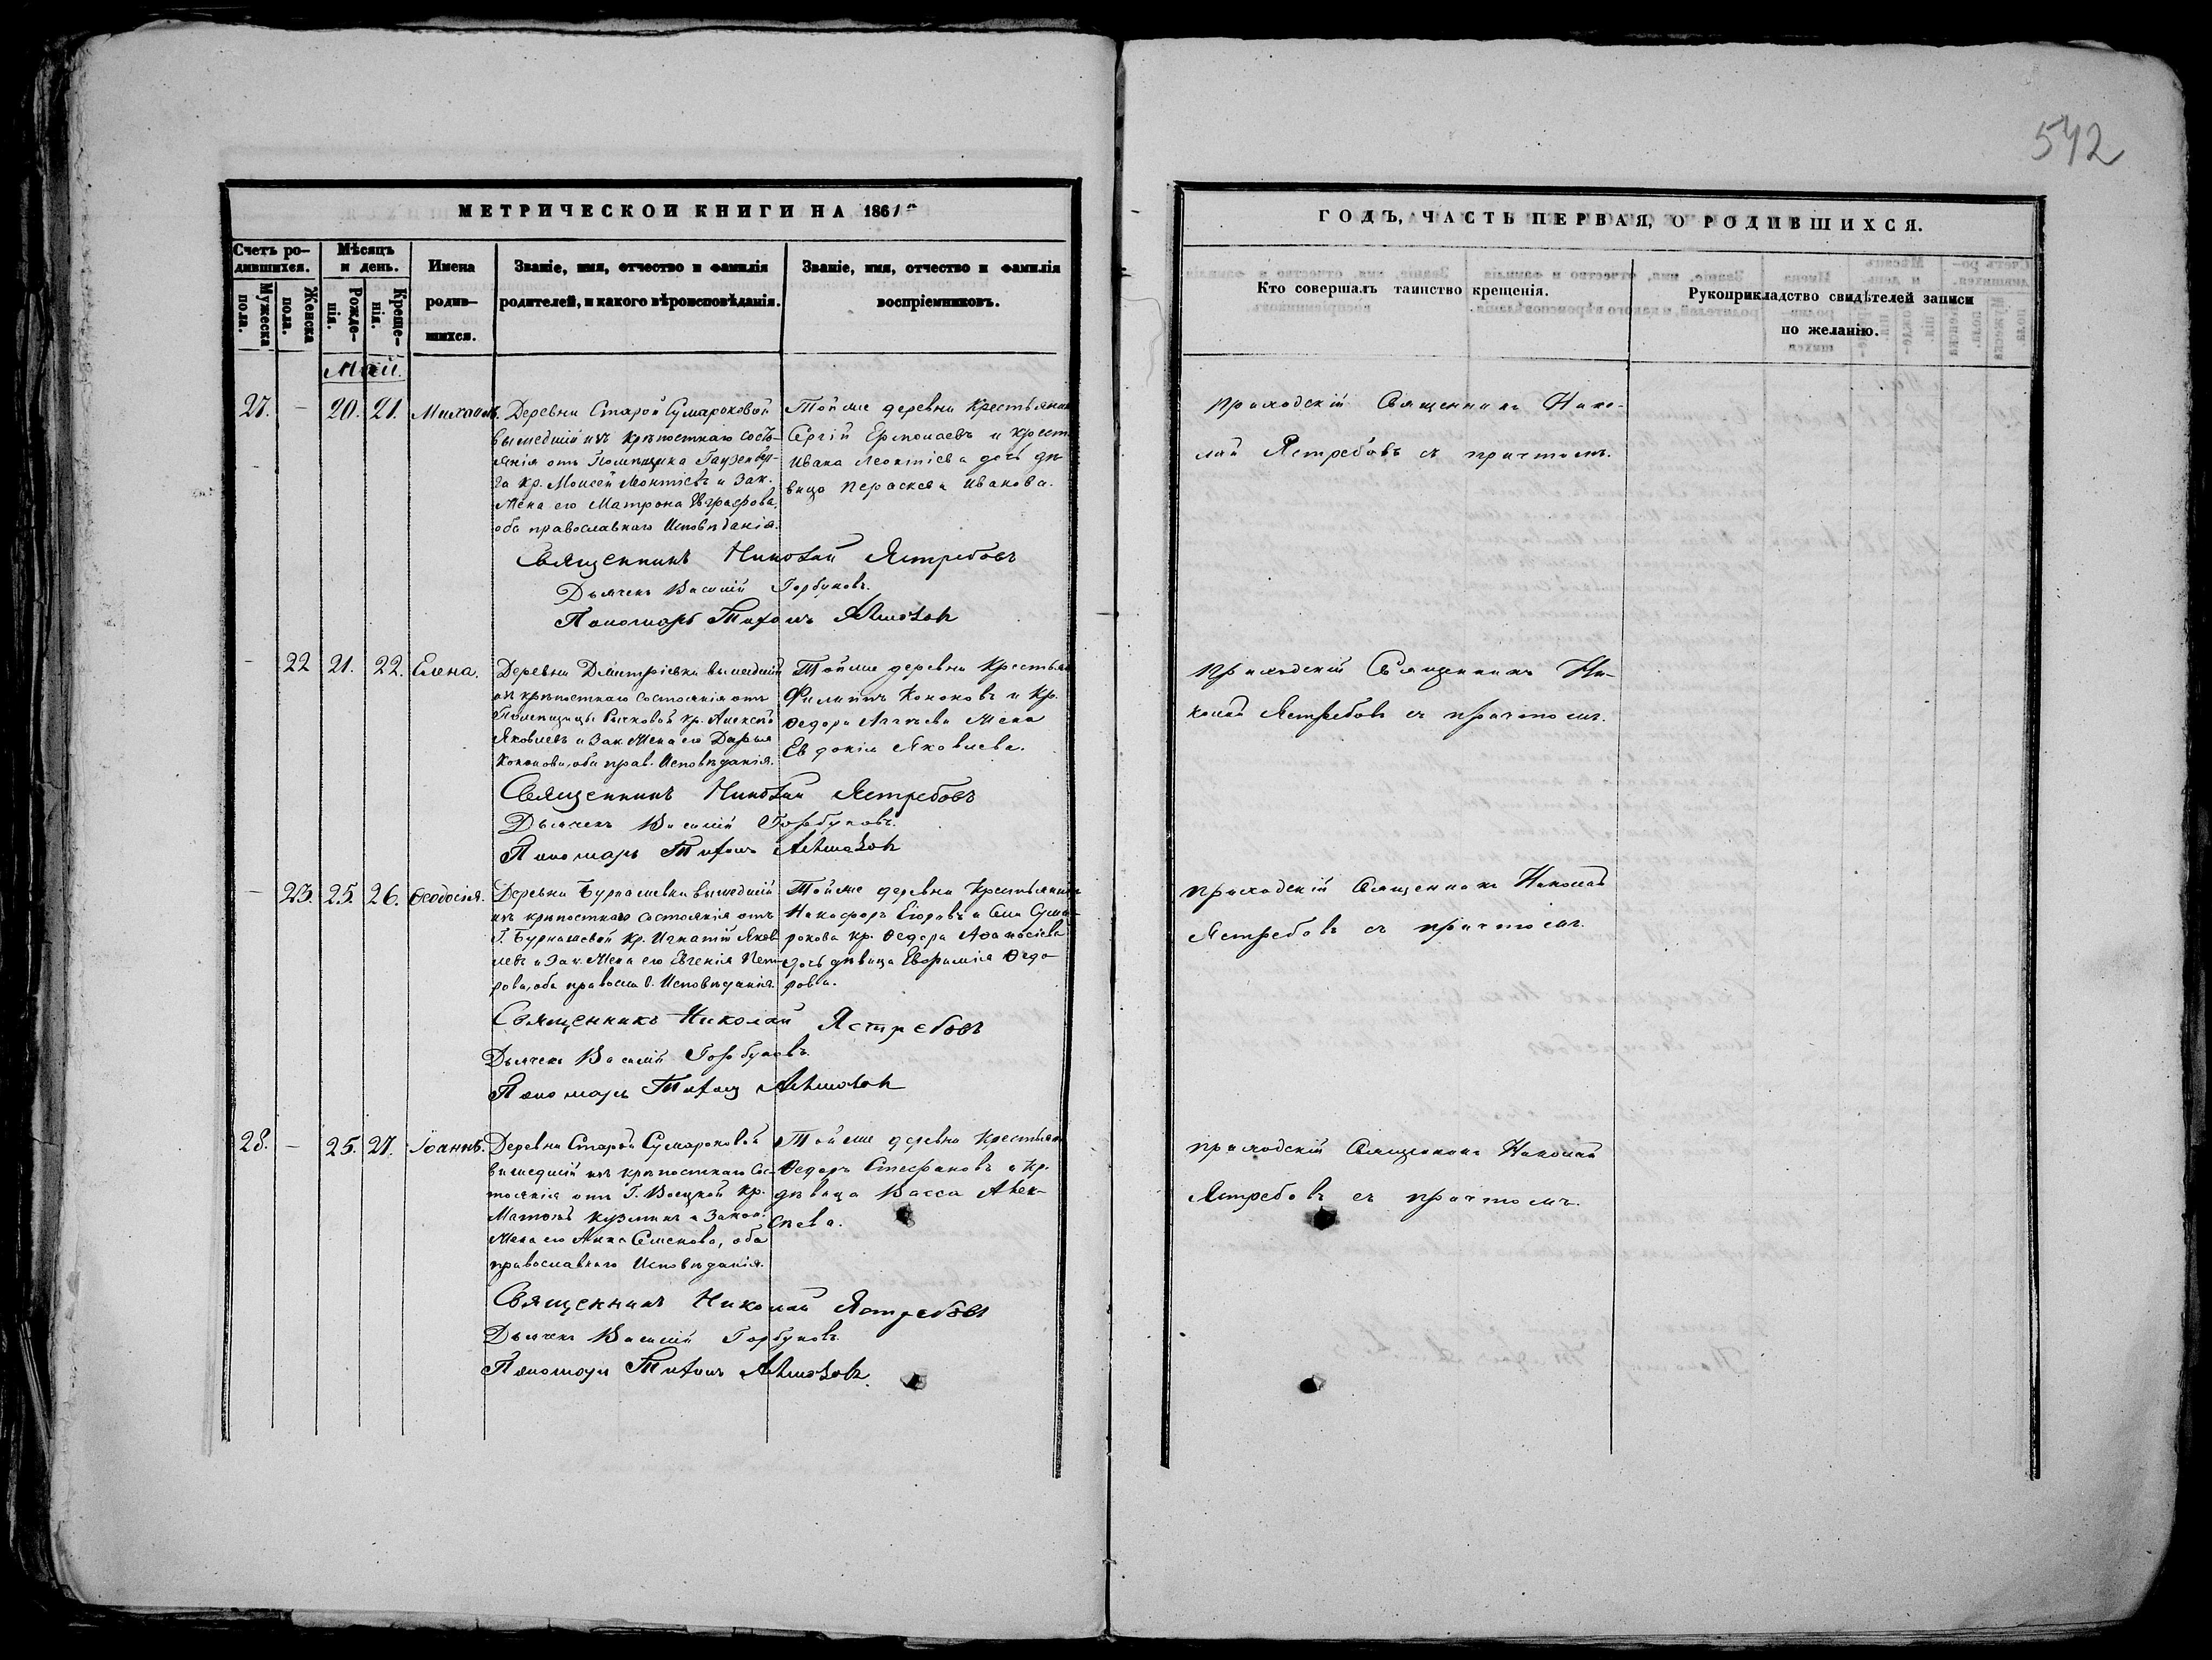 542
МЕТРИЧЕСКОЙ КНИГИ НА 1861
ГОДЪ, ЧАСТЬ ПЕРВАЯ, О РОДИВШИХСЯ.
Счетъ ро-
дившихся.
Мужеска
пола.
Женска
пола.
Мѣсяцъ
и день.
Рожде-
нія.
Креще-
нія.
Имена
родив-
шихся.
Званіе, имя, отчество и фамилія
родителей, и какого вѣроисповѣданія.
Званіе, имя, отчество и фамилія
воспріемниковъ.
Кто совершалъ таинство крещенія.
Рукоприкладство свидѣтелей записи
по желанію.
Май.
27. – 20. 21. Михаилъ.
Деревни Старой Сумароковой
вышедшій изъ крѣпостнаго состо-
янія отъ Помѣщика
кр. Моисей Леонтіевъ и Зак.
Жена его Матрона Евграфова,
оба православнаго Исповѣданія.
Тойже деревни Крестьянинъ
Сергій Ермолаевъ и Крест.
Ивана Леонтіева дочь дѣ-
вица Параскева Иванова.
Приходскій Священникъ Нико-
лай Ястребовъ съ причтомъ.
Священникъ Николай Ястребовъ
Дьячекъ Василій Горбуновъ.
Пономарь Тихонъ
– 22 21. 22. Елена.
Деревни Димитріевки вышедшій
изъ крѣпостнаго состоянія отъ
Помѣщицы Рычковой кр. Алексѣй
Яковлевъ и Зак. Жена его Дарья
Кононова, оба прав. Исповѣданія.
Тойже деревни Крестьян.
Филиппъ Кононовъ и Кр.
Ѳедора жена
Евдокія Яковлева.
Приходскій Священникъ Ни-
колай Ястребовъ съ причтомъ.
Священникъ Николай Ястребовъ
Дьячекъ Василій Горбуновъ.
Пономарь Тихонъ
– 23. 25. 26. Ѳеодосія.
Деревни Бурнашевки вышедшій
изъ крѣпостнаго состоянія отъ
Г. Бурнашевой кр. Игнатій Яков-
левъ и Зак. Жена его Евгенія Пет-
рова, оба православ. Исповѣданія.
Тойже деревни Крестьянинъ
Никифоръ Егоровъ и Села Сума-
рокова кр. Ѳедора Аѳанасіева
дочь дѣвица Евфимія Ѳедо-
рова.
Приходскій Священникъ Николай
Ястребовъ съ причтомъ.
Священникъ Николай Ястребовъ
Дьячекъ Василій Горбуновъ.
Пономарь Тихонъ
28. – 25. 27. Іоаннъ.
Деревни Старой Сумароковой
вышедшій изъ крѣпостнаго Со-
тоянія отъ Г. кр.
Кузминъ и Закон.
Жена его Анна Семенова, оба
православнаго Исповѣданія.
Тойже деревни Крестьян.
Ѳедоръ Стефановъ и Кр.
дѣвица Васса Алек-
сѣева.
Приходскій Священникъ Николай
Ястребовъ съ причтомъ.
Священникъ Николай Ястребовъ
Дьячекъ Василій Горбуновъ.
Пономарь Тихонъ